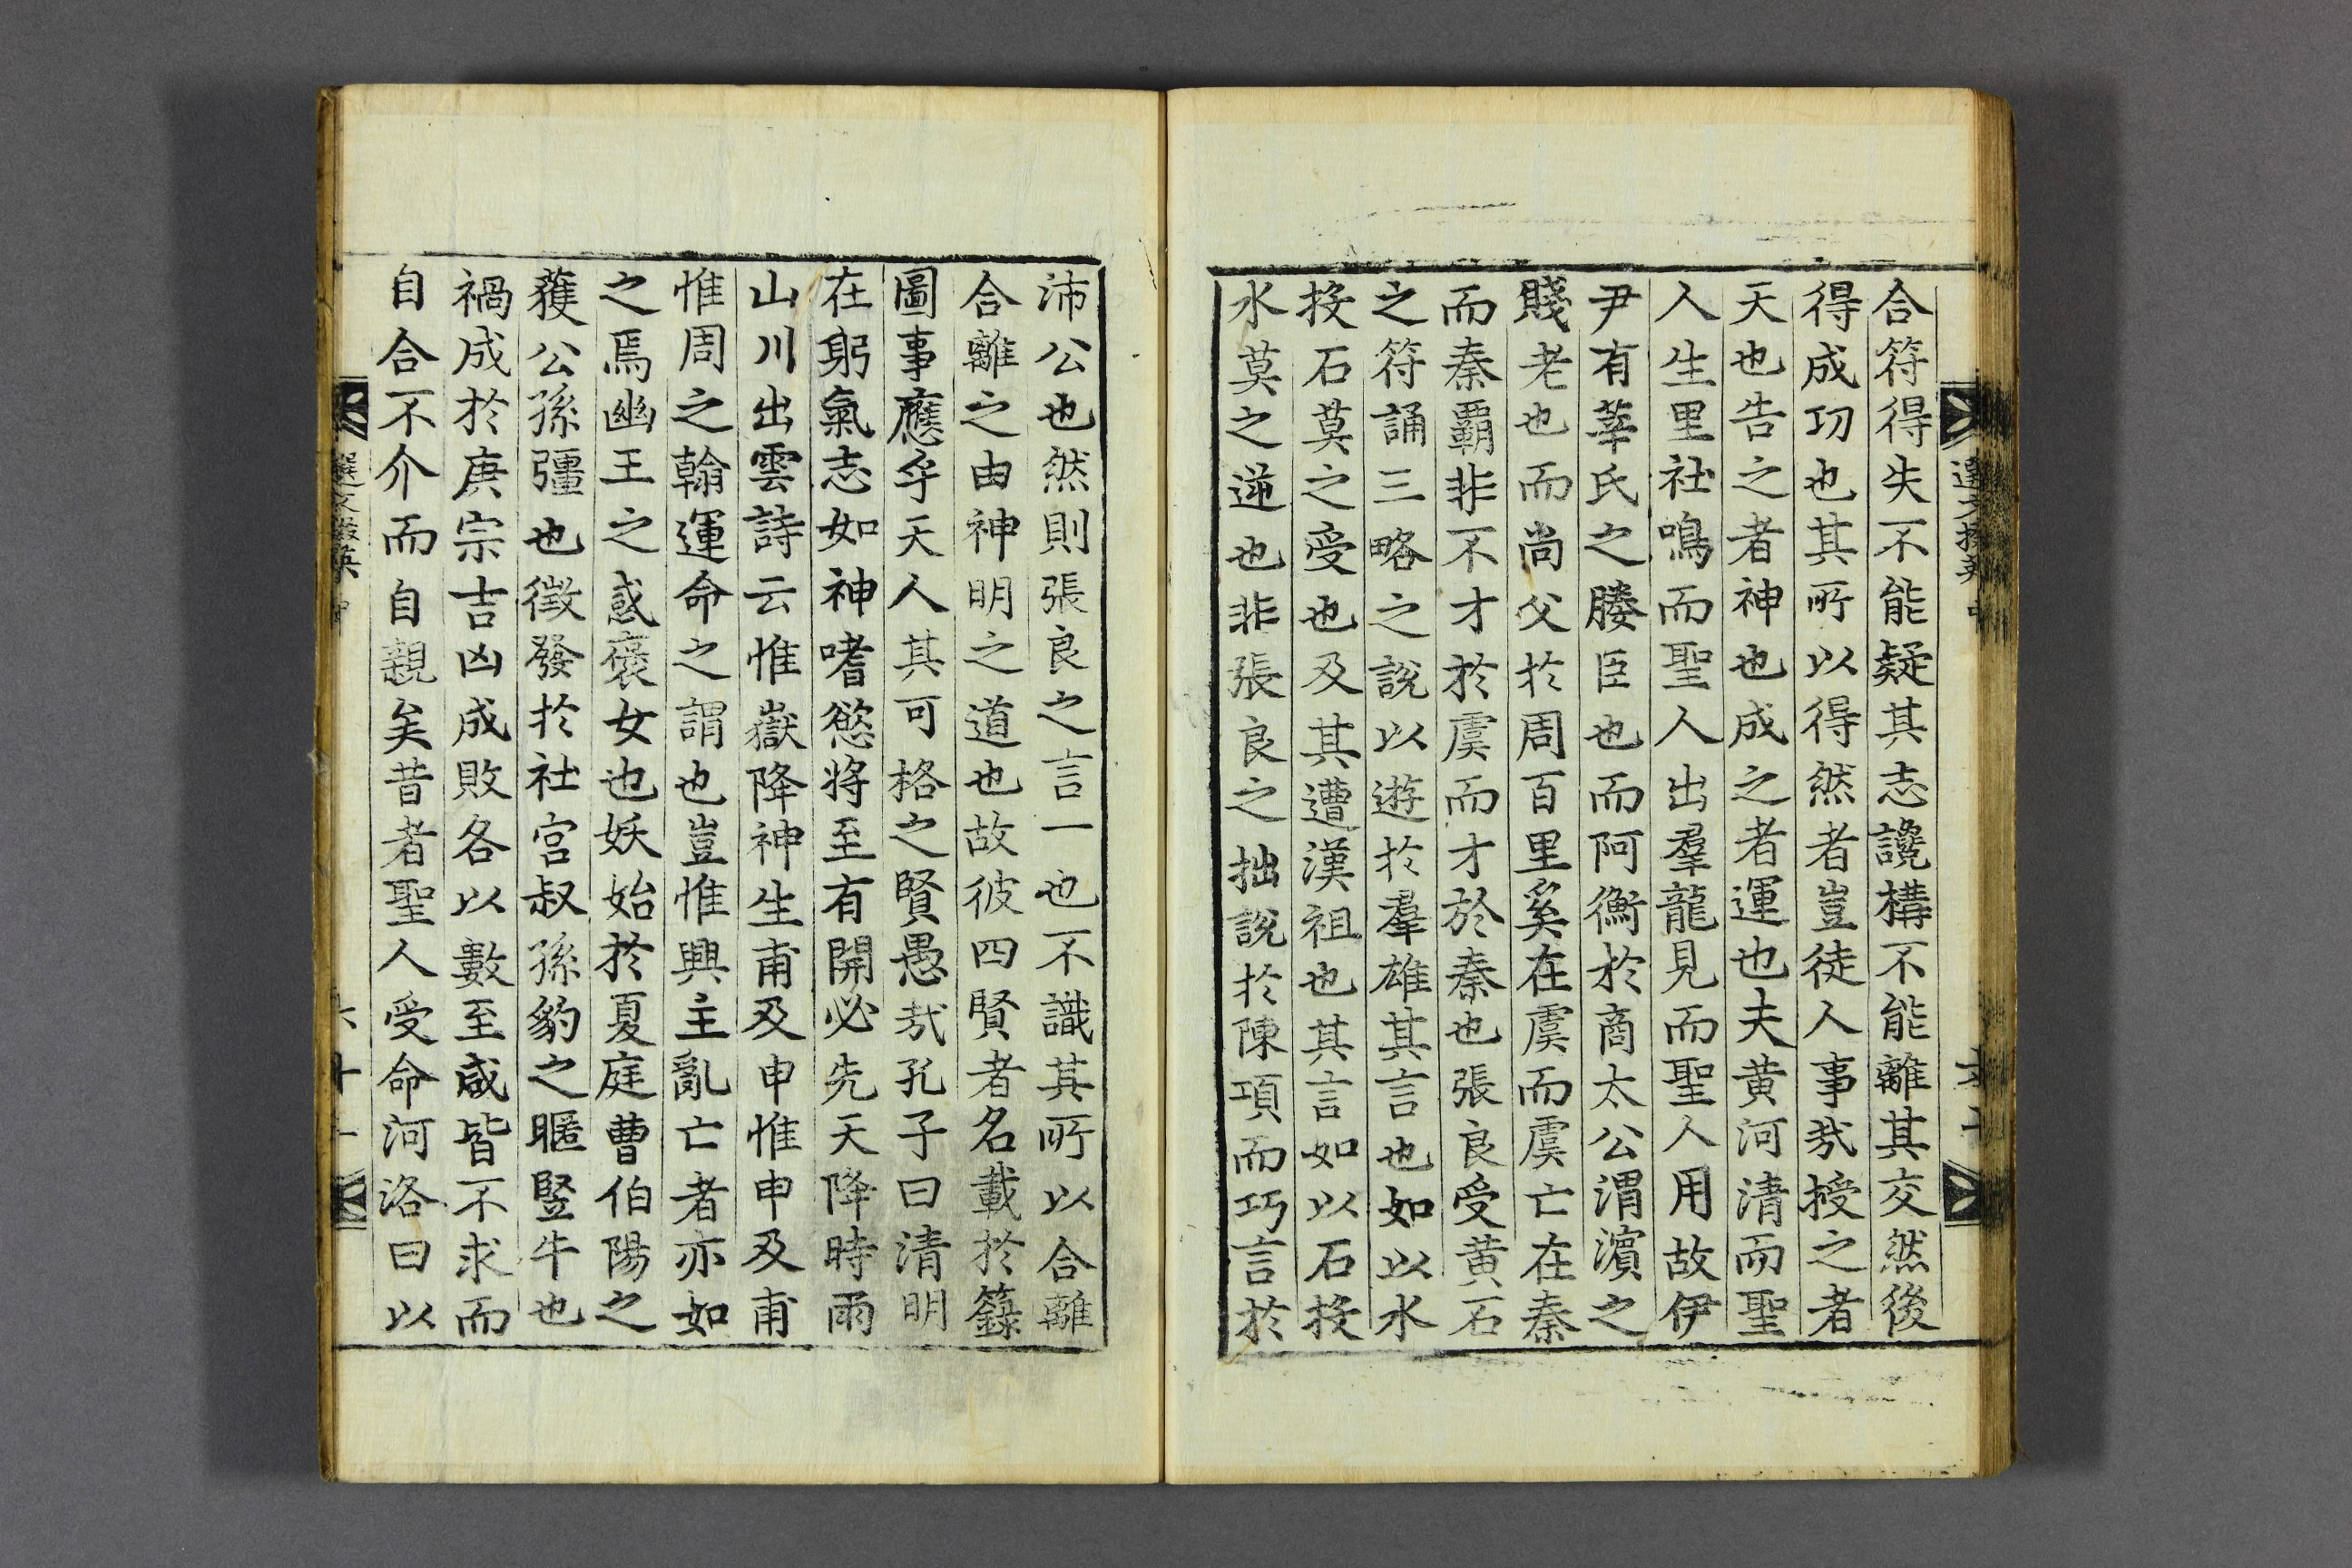 合符得失不能疑其志讒構不能離其交然後
得成功也其所以得然者豈徒人事㢤授之者
天也告之者神也成之者運也夫黄河清而聖
人生里社鳴而聖人出羣龍見而聖人用故伊
尹有莘氏之媵臣也而阿衡於商太公渭濱之
賤老也而尚父於周百里奚在虞而虞亡在秦
而秦覇非不才於虞而才於秦也張良受黄石
之符誦三略之說以遊於羣雄其言也如以水
投石莫之受也及其遭漢祖也其言如以石投
水莫之逆也非張良之拙說於陳項而巧言於
選文掇英 中
沛公也然則張良之言一也不識其所以合離
合離之由神明之道也故彼四賢者名載於籙
圖事應乎天人其可格之賢愚㢤孔子曰清明
在躬氣志如神嗜慾將至有開必先天降時雨
山川出雲詩云惟嶽降神生甫及申惟申及甫
惟周之翰運命之謂也豈惟興主亂亡者亦如
之焉幽王之惑褒女也妖始於夏庭曹伯陽之
獲公孫彊也徵發於社宮叔孫豹之暱豎牛也
禍成於庚宗吉凶成敗各以數至咸皆不求而
自合不介而自親矣昔者聖人受命河洛曰以
選文掇英 中
六十一